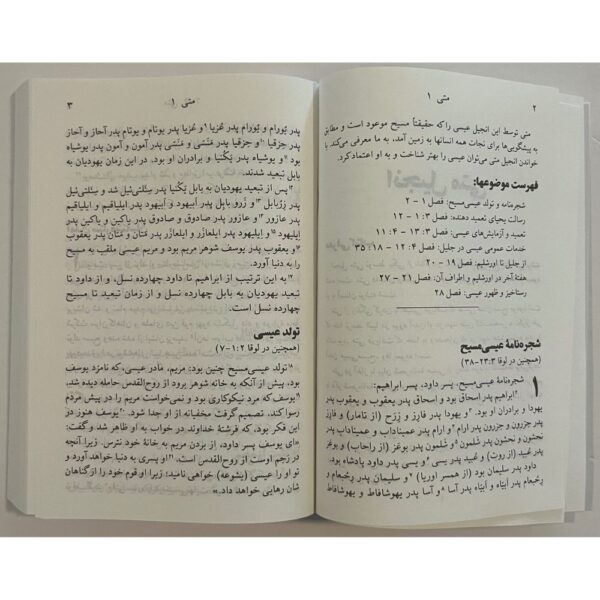 ۲
متی ۱
متی توسط این انجیل عیسی را که حقیقتاً مسیح موعود است و مطابق
پیشگویی‌ها برای نجات همه انسانها به زمین آمد، به ما معرفی می‌کند. با
خواندن انجیل متی می‌توان عیسی را بهتر شناخت و به او اعتماد کرد.
فهرست موضوعها:
شجره‌نامه و تولد عیسی‌مسیح: فصل ۱ - ۲
رسالت یحیای تعمید دهنده: ۱:۳ - ۱۲
تعمید و آزمایش‌های عیسی: ۱۳:۳ - ۱۱:۴
خدمات عمومی عیسی در جلیل: ۱۲:۴ - ۳۵:۱۸
از جلیل تا اورشلیم: فصل ۱۹ - ۲۰
هفتهٔ آخر در اورشلیم و اطراف آن: فصل ۲۱ - ۲۷
رستاخیز و ظهور عیسی: فصل ۲۸
شجره‌نامهٔ عیسی‌مسیح
(همچنین در لوقا ۲۳:۳-۳۸)
۱ شجره‌نامهٔ عیسی‌مسیح، پسر داود، پسر ابراهیم:
ابراهیم پدر اسحاق بود و اسحاق پدر یعقوب و یعقوب پدر
یهودا و برادران او بود. و یهودا پدر فارِز و زِرَح (از تامار) و فارز
پدر حزرون و حزرون پدر ارام و ارام پدر عمیناداب و عمیناداب پدر
نحشون و نحشون پدر شَلمون و شَلمون پدر بوعَز (از راحاب) و بوعز
پدر عُبید (از روت) و عبید پدر یسی و یسی پدر داود پادشاه بود.
داود پدر سلیمان بود (از همسر اوریا) و سلیمان پدر رِحُبعام و
رحبعام پدر اَبیّاه و اَبیّاه پدر آسا و آسا پدر یهوشافاط و یهوشافاط
متی ۱
۳
پدر یُورام و یُورام پدر عُزیا و عُزیا پدر یوتام و یوتام پدر آحاز و آحاز
پدر حِزقیا و حزقیا پدر مَنَسّی و مَنَسّی پدر آمون و آمون پدر یوشیاه
بود و یوشیاه پدر یَکُنیا و برادران او بود. در این زمان یهودیان به
بابل تبعید شدند.
پس از تبعید یهودیان به بابل یَکُنیا پدر سِئلتی‌ئیل شد و سِئلتی‌ئیل
پدر زرُبابل و زرو بابل پدر اَبیهود و اَبیهود پدر ایلیاقیم و ایلیاقیم
پدر عازور و عازور پدر صادوق و صادوق پدر یاکین و یاکین پدر
ایلیهود و ایلیهود پدر ایلعازَر و ایلعازَر پدر مَتان و مَتان پدر یعقوب
و یعقوب پدر یوسف شوهر مریم بود و مریم عیسی ملقب به مسیح
را به دنیا آورد.
به این ترتیب از ابراهیم تا داود چهارده نسل، و از داود تا
تبعید یهودیان به بابل چهارده نسل و از زمان تبعید تا مسیح
چهارده نسل است.
تولد عیسی
(همچنین در لوقا ۱:۲-۷)
تولد عیسی‌مسیح چنین بود: مریم، مادر عیسی، که نامزد یوسف
بود، پیش از آنکه به خانه شوهر برود از روح‌القدس حامله دیده شد.
یوسف که مرد نیکوکاری بود و نمی‌خواست مریم را در پیش مردم
رسوا کند، تصمیم گرفت مخفیانه از او جدا شود. یوسف هنوز در
این فکر بود، که فرشتهٔ خداوند در خواب به او ظاهر شد و گفت:
«ای یوسف پسر داود، از بردن مریم به خانهٔ خود نترس. زیرا آنچه
در رَحِم اوست از روح‌القدس است. او پسری به دنیا خواهد آورد و
تو او را عیسی (یشوعه) خواهی نامید؛ زیرا او قوم خود را از گناهان
شان رهایی خواهد داد.»